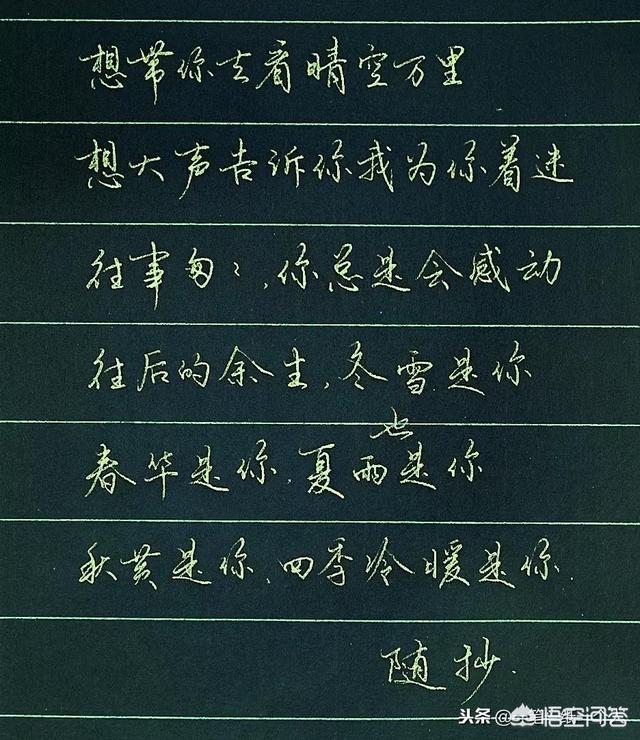 想带你去看晴空万里
想大声告诉你我为你着迷
往事匆〻,你总是会感动
往后的余生,冬雪是你
春华是你,夏雨也是你
秋黄是你,四季冷暖是你.
随抄.
悟空问答
头条@